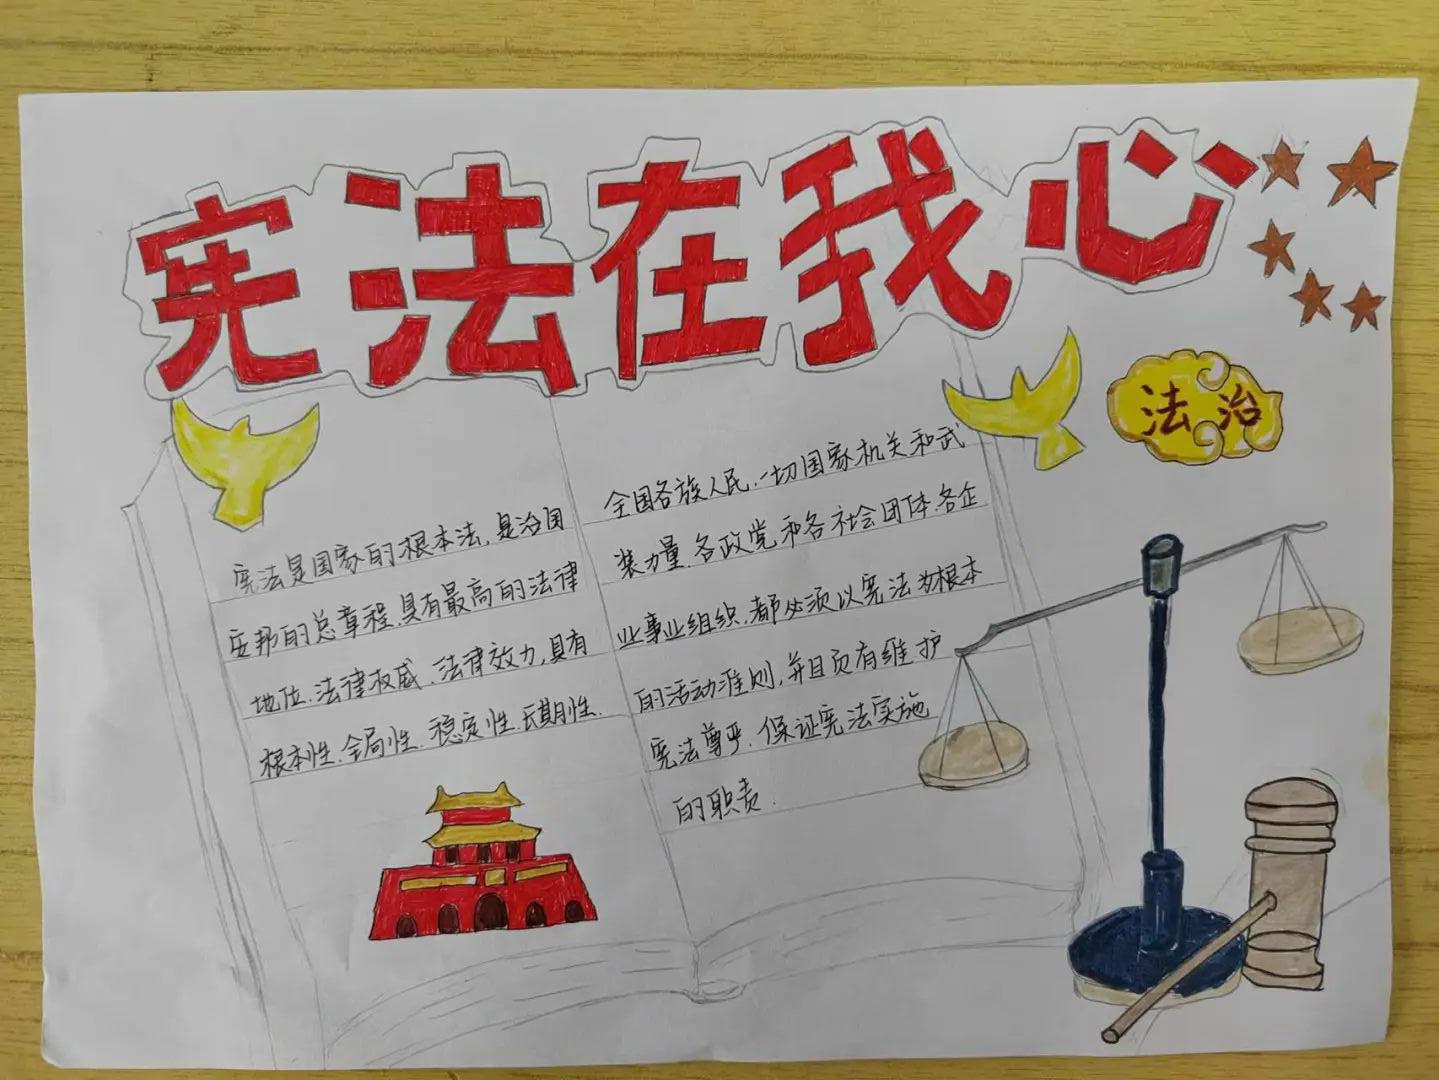 宪法在我心
法治
宪法是国家的根本法,是治国
安邦的总章程,具有最高的法律
地位、法律权威、法律效力,具有
根本性、全局性、稳定性、长期性.
全国各族人民、一切国家机关和武
装力量、各政党和各社会团体、各企
业事业组织,都必须以宪法为根本
的活动准则,并且负有维护
宪法尊严、保证宪法实施
的职责.